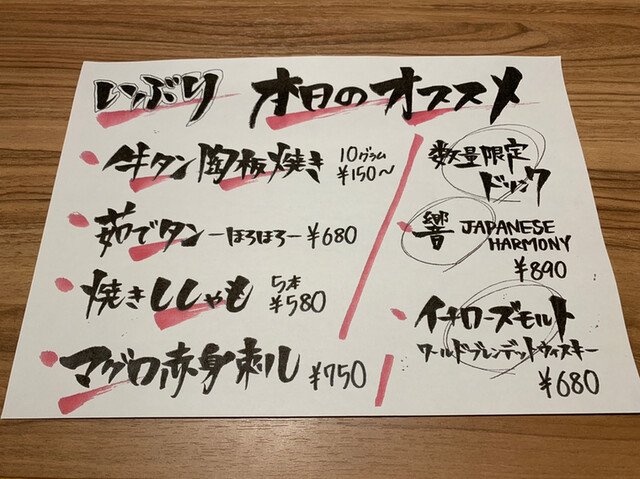 いぶり 本日のオススメ
牛タン陶板焼き 10グラム ¥150〜
茹でタン ーほろほろー ¥680
焼きししゃも 5本 ¥580
マグロ赤身刺し ¥750
数量限定
ドリンク
響 JAPANESE
HARMONY
¥890
イチローズモルト
ワールドブレンデットウィスキー
¥680